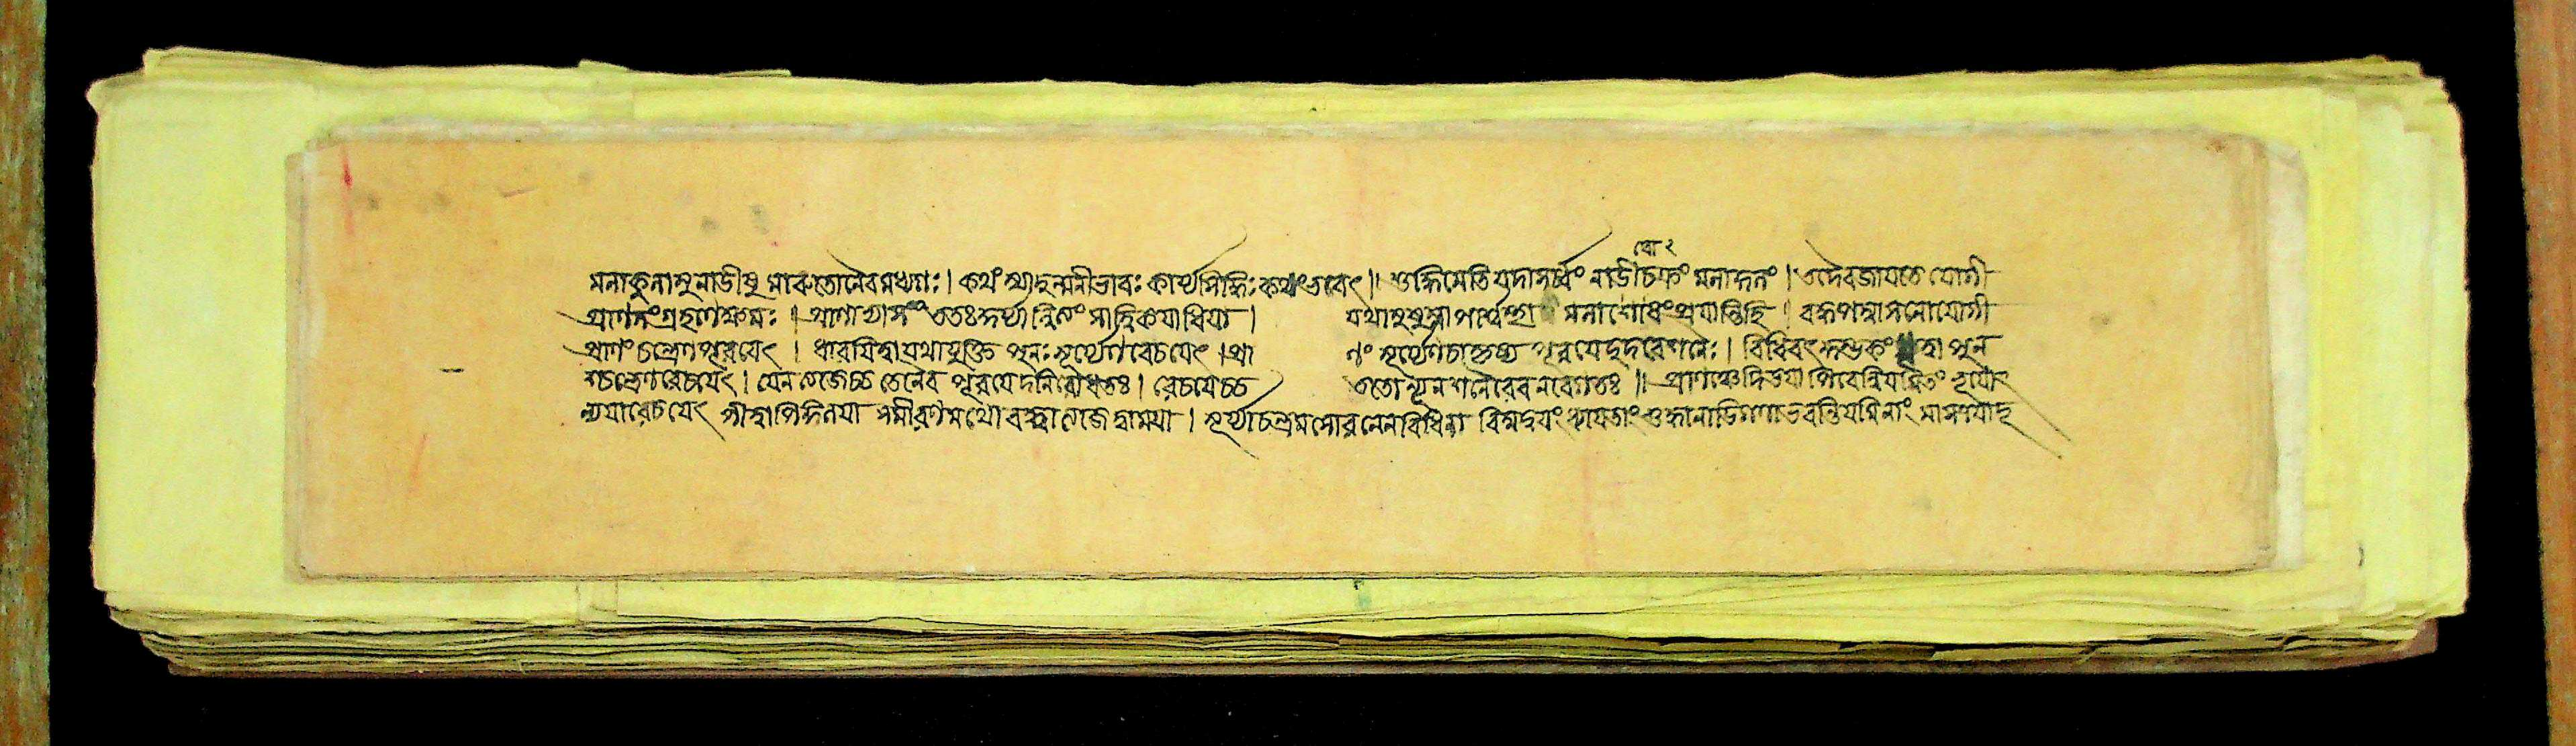 মলাকুলাসুনাডীষু মারুতোনৈবমধ্যগঃ। কথং স্যাদুন্মনীভাবঃ কার্য্যসিদ্ধিঃ কথংভবেৎ॥ শুদ্ধিমেতি যদাসর্ব্বং নাডীচক্রং মলাকুলং। তদৈবজায়তে যোগী
প্রাণসংগ্রহণেক্ষমঃ। প্রাণায়ামং ততঃকুর্য্যান্নিত্যং সাত্ত্বিকয়াধিয়া। যথাসুষুম্নাপার্শ্বস্থা মলাশোধংপ্রয়ান্তিহি। বদ্ধপদ্মাসনোযোগী
প্রাণং চন্দ্রেণপূরয়েৎ। ধারয়িত্বাযথাযুক্তি পুনঃসূর্য্যেণরেচয়েৎ। প্রা ণং সূর্য্যেণচাকৃষ্য পূরয়েদুদরংশনৈঃ। বিধিবৎকুম্ভকং কৃত্বা পুন
শ্চন্দ্রেণরেচয়েৎ। যেনত্যজেচ্চ তেনৈব পূরয়েদনিরোধতঃ। রেচয়েচ্চ ততোন্যেন শনৈরেবনবেগতঃ॥ প্রাণঞ্চেদিডয়াপিবেন্নিয়মিতং ভূয়ো
ন্যয়ারেচয়েৎ পীত্বাপিঙ্গলয়া সমীরণমথো বদ্ধ্বাত্যজেদ্বাময়া। সূর্য্যাচন্দ্রমসোরনেনবিধিনা বিম্বদ্বয়ংধ্যায়তাং শুদ্ধানাডিগণাভবন্তিযমিনাং মাসত্রয়াদূ